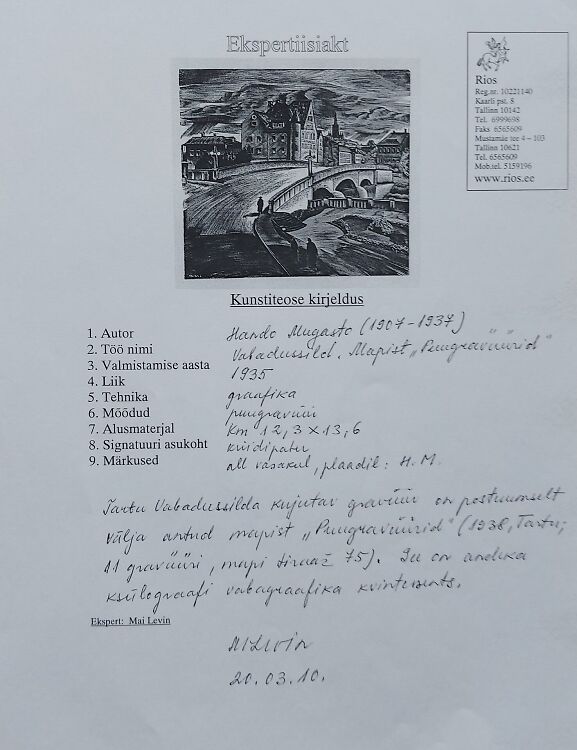 Ekspertiisiakt
Rios
Reg.nr. 10221140
Kaarli pst. 8
Tallinn 10142
Tel. 6999698
Faks 6565609
Mustamäe tee 4 – 103
Tallinn 10621
Tel. 6565609
Mob.tel. 5159196
www.rios.ee
Kunstiteose kirjeldus
1. Autor
2. Töö nimi
3. Valmistamise aasta
4. Liik
5. Tehnika
6. Mõõdud
7. Alusmaterjal
8. Signatuuri asukoht
9. Märkused
Hando Mugasto (1907-1937)
Vabadussild. Mapist „Puugravüürid"
1935
graafika
puugravüür
Km 12,3 x 13,6
kriidipaber
all vasakul, plaadil: H. M.
Tartu Vabadussilda kujutav gravüür on postuumselt
välja antud mapist „Puugravüürid" (1938, Tartu;
11 gravüüri, mapi tiraaž 75). See on andeka
ksülograafi vabagraafika kvintessents.
Ekspert: Mai Levin
MLevin
20.03.10.